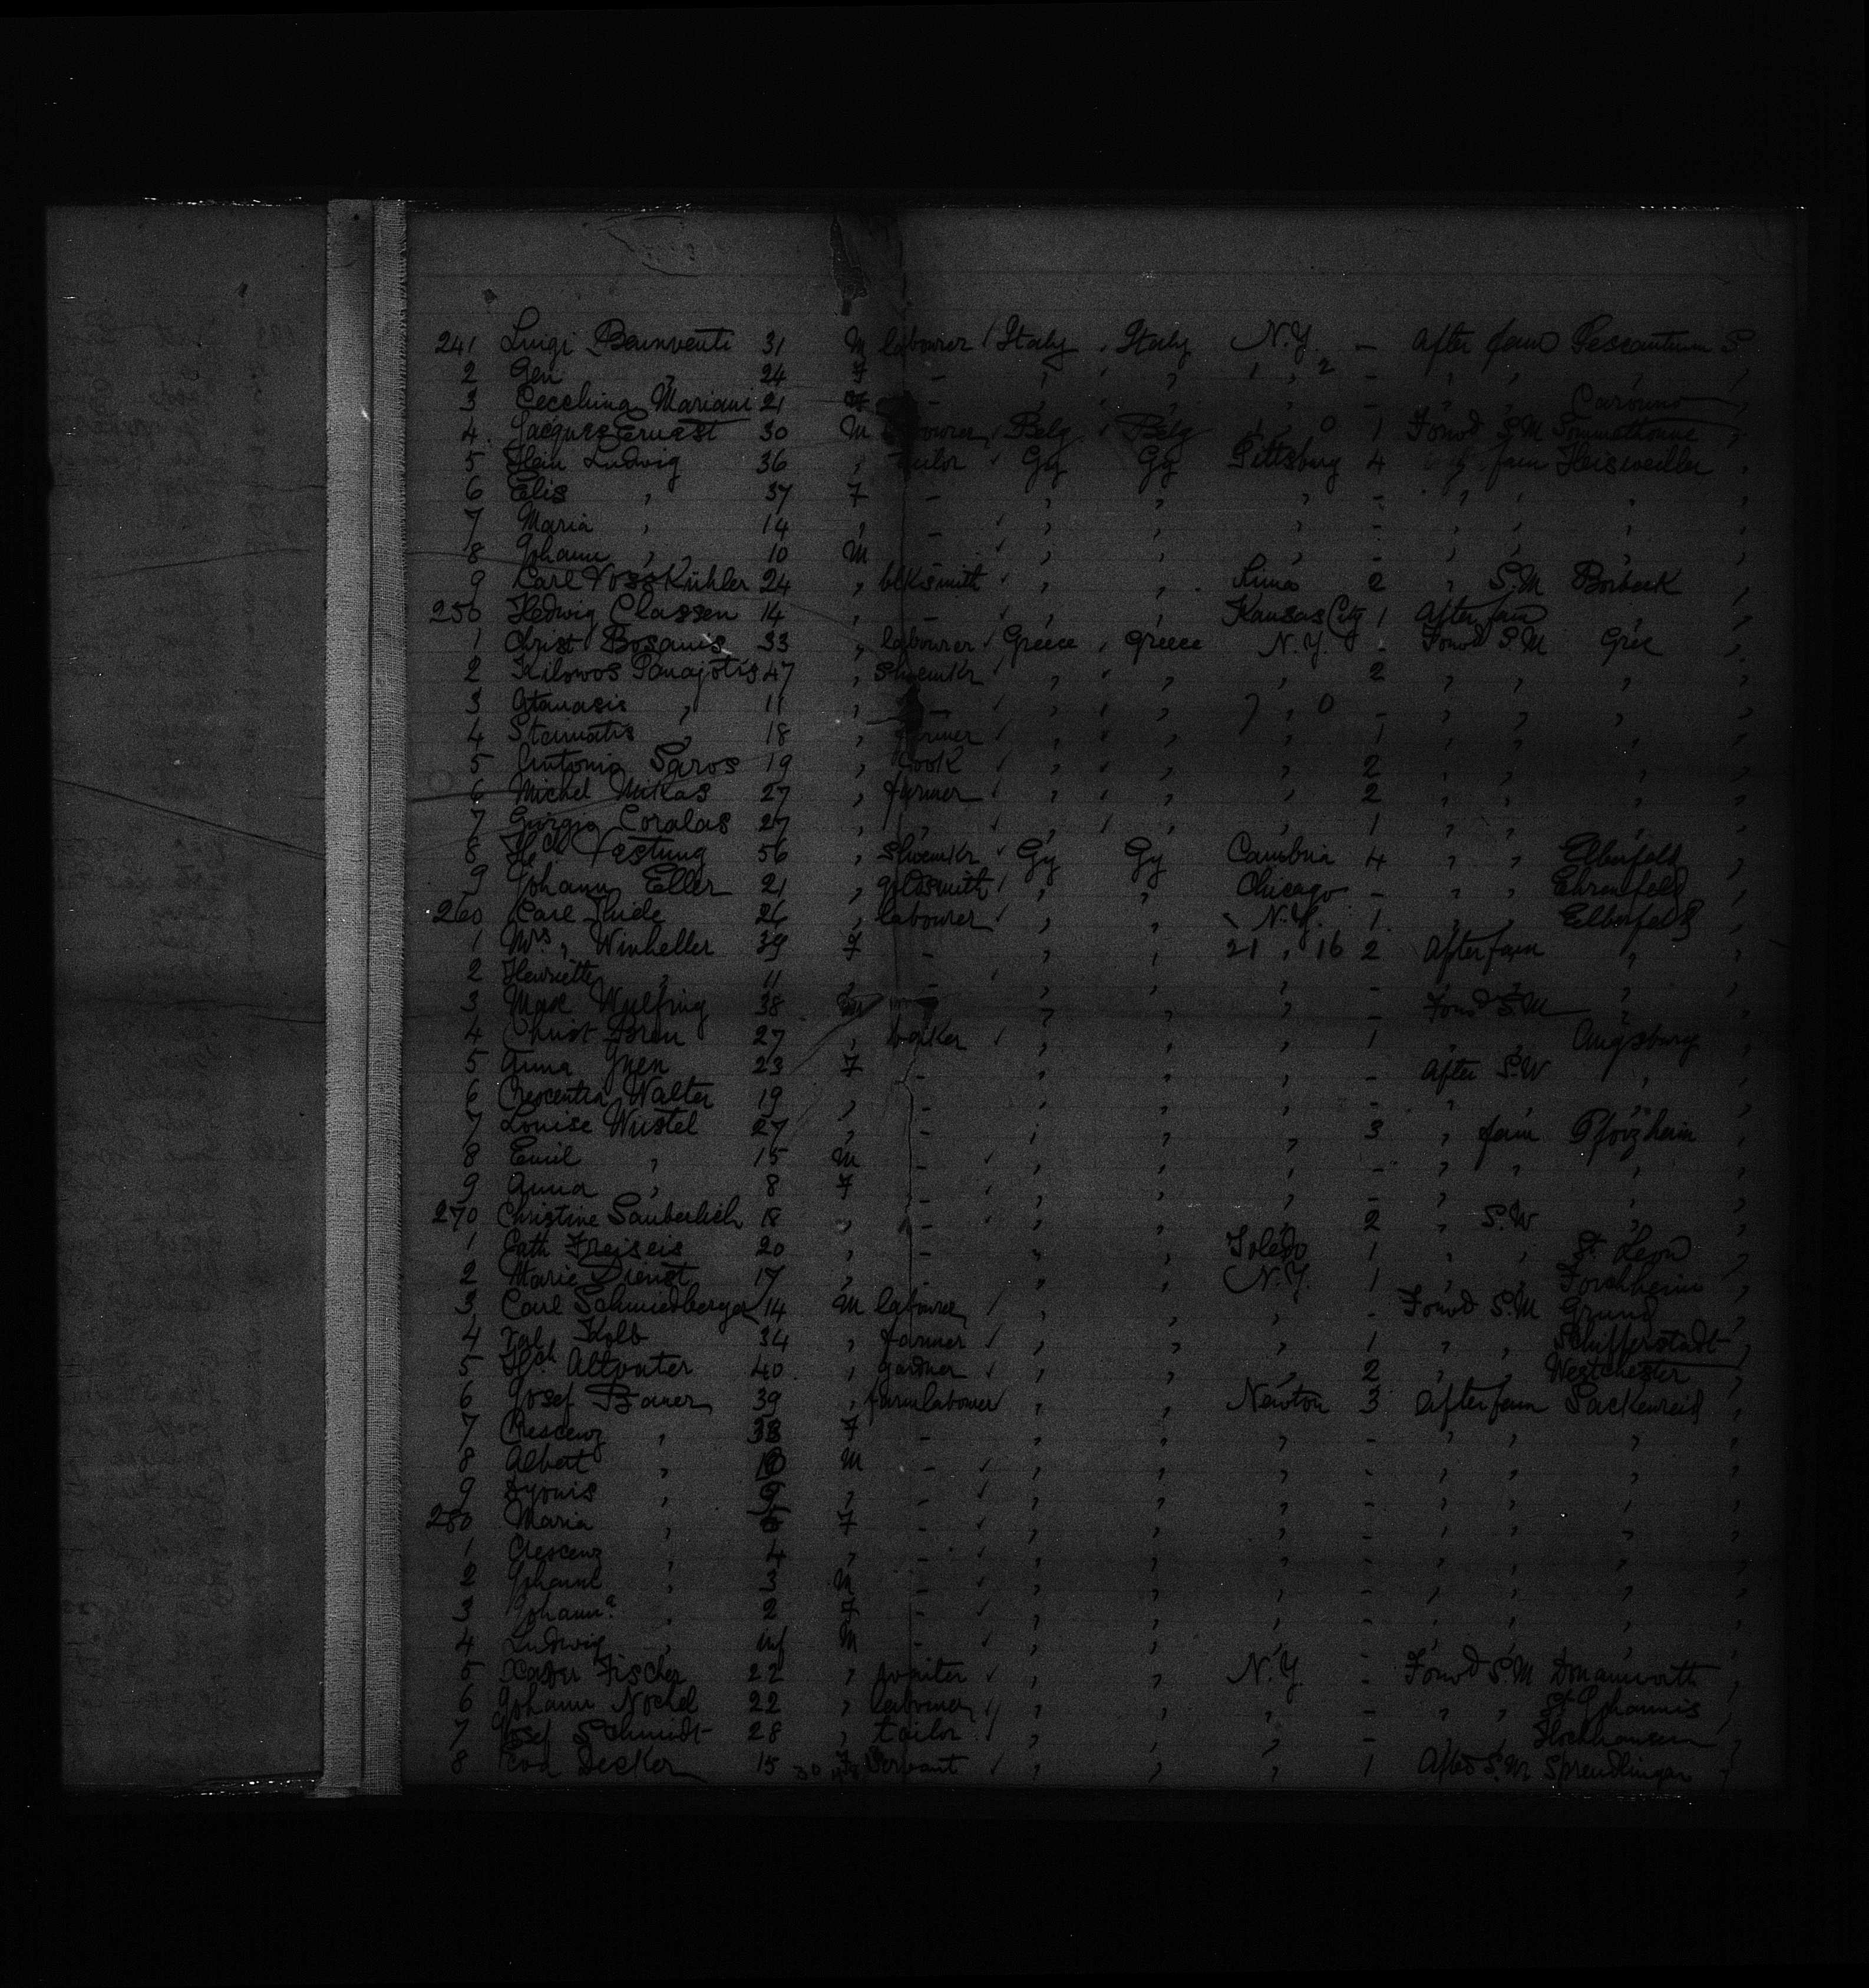 241 Luigi Bainventi 31 M labourer / Italy , Italy N.Y. - After fam S
2 Gen , 24 F - , , , , 2 - , , , ,
3 Cecchina Mariani 21 F - , , , - , , Caronno ,
4 Jacques Ernest 30 M labourer , Belg , Belg , 0 1 Forwd S.M Sommethonne ,
5 Hein Ludwig 36 , tailor Gy Gy Pittsburg 4 fam Heisweiller ,
6 Elis , 37 F - , , , - , , , ,
7 Maria , 14 , - , , , - , , , ,
8 Johann , 10 M , , , - , , , ,
9 Carl VossKühler 24 , blksmith , , Lima 2 , S.M Borbeck ,
250 Hedwig Classen 14 , - , , Kansas City 1 After fam , ,
1 Christ Bosanis 33 , labourer Greece , Greece N.Y. - Forwd S.M Grie ,
2 Kilowos Panajotis 47 , Shoemkr , , , 2 , , , ,
3 Atanasis , 11 , - , , , 0 - , , , ,
4 Stamatis , 18 , farmer , , , 1 , , , ,
5 Antonio Saros 19 , Cook , , , 2 , , , ,
6 Michel Mikas 27 , farmer , , , 2 , , , ,
7 Giorgio Coralas 27 , , , , , 1 , , , ,
8 Hch Vestung 56 , Shoemkr Gy Gy Cambria 4 , , Elberfeld ,
9 Johann Eller 21 , goldsmith , , Chicago - , , Ehrenfeld ,
260 Carl Thiele 26 , labourer , , N.Y. 1 , , Elberfeld
1 Mrs , Winheller 39 F - , , 21 , 16 2 After fam , ,
2 Henriette , 11 , - , , , - , , , ,
3 Max Wulfing 38 M , , , - Forwd S.M , ,
4 Christ Bren 27 , baker , , , 1 , , Augsburg ,
5 Anna Gyen 23 F - , , , - After S.W , ,
6 Crescentia Walter 19 , - , , , - , , , ,
7 Louise Wüstel 27 , - , , , 3 , fam Pforzheim ,
8 Emil , 15 M - , , , - , , , ,
9 Anna , 8 F - , , , - , , , ,
270 Christine Sauberlich 18 , - , , , 2 , S.W , ,
1 Cath Freiseis 20 , - , , Toledo 1 , , St. Leon ,
2 Marie Dienst 17 , - , , N.Y. 1 , , Forchheim ,
3 Carl Schmiedberger 14 M labourer , , , - Forwd S.M Grund ,
4 Val. Kolb 34 , farmer , , , 1 , , Schifferstadt ,
5 Hch Altvater 40 , gardner , , , 2 , , Westchester ,
6 Josef Bauer 39 , farmlabourer , , Newton 3 After fam Sackenreid ,
7 Crescenz , 38 F - , , , - , , , ,
8 Albert , 10 M - , , , - , , , ,
9 Dyonis , 9 , - , , , - , , , ,
280 Maria , F - , , , - , , , ,
1 Crescenz , 4 , - , , , - , , , ,
2 Johann , 3 M - , , , - , , , ,
3 Johanna , 2 F - , , , - , , , ,
4 Ludwig , inf M - , , , - , , , ,
5 Xaver Fischer 22 , waiter , , N.Y. - Forwd S.M Donauwörth ,
6 Johann Nochel 22 , labourer , , , - , , St. Johannis ,
7 Josef Schmidt 28 , tailor , , , - , , Hochhausen ,
8 Decker 15 F Servant , , , 1 After S.W Sprendlingen ,